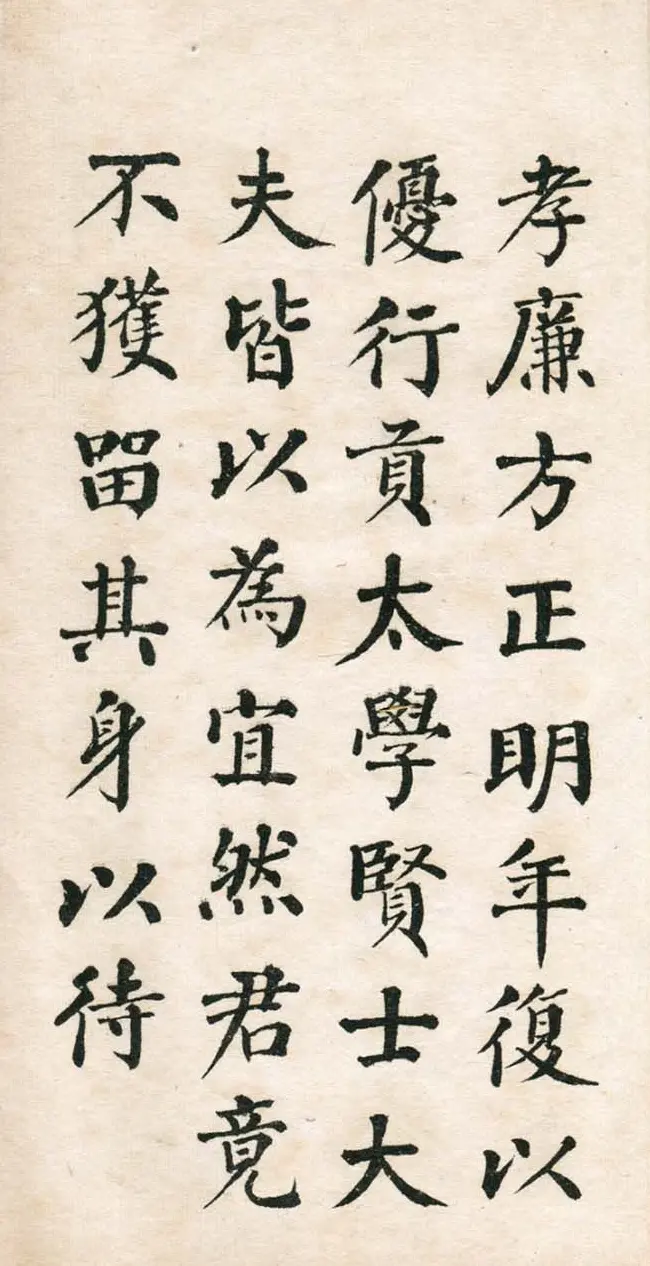 孝廉方正明年復以
優行貢太學賢士大
夫皆以為宜然君竟
不獲留其身以待